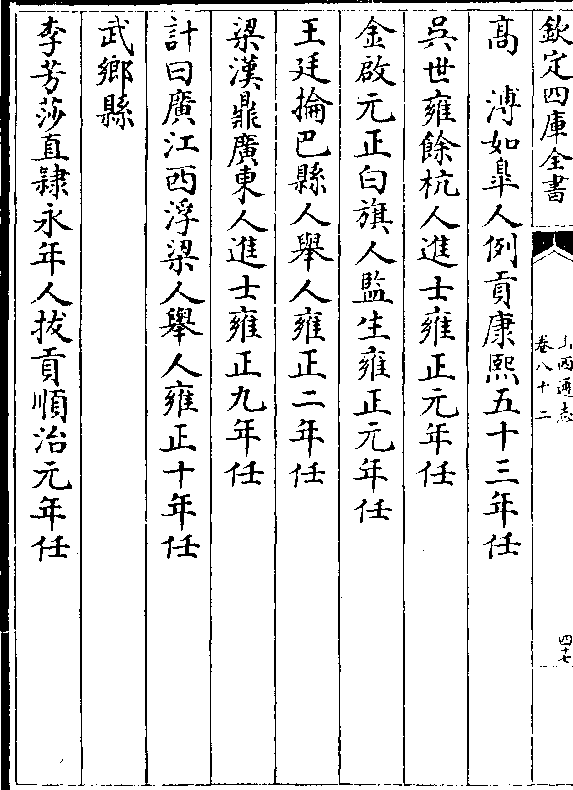 欽定四庫全書
山西通志
卷八十二
四十七
高溥如臯人例貢康熙五十三年任
吳世雍餘杭人進士雍正元年任
金啟元正白旗人監生雍正元年任
王廷掄巴縣人舉人雍正二年任
梁漢鼎廣東人進士雍正九年任
計曰廣江西浮梁人舉人雍正十年任
武鄉縣
李芳莎直隸永年人拔貢順治元年任